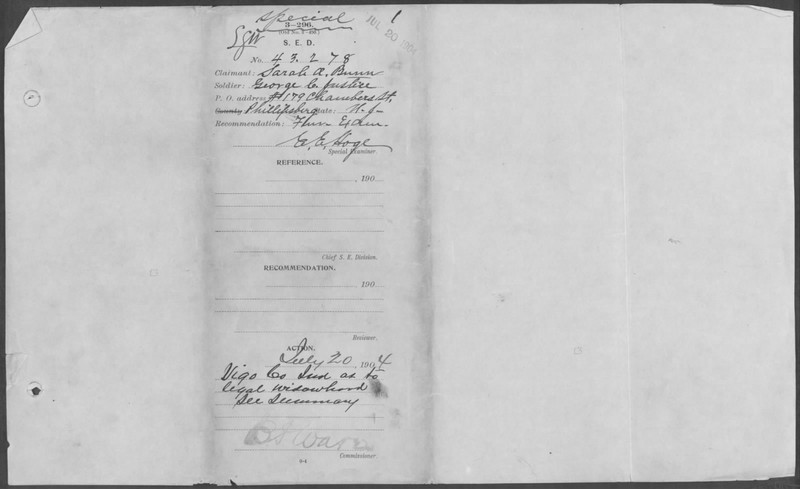 special
1
JUL 20 1904
3—296.
S. E. D.
No. 43278
Claimant: Sarah A. Bunn
Soldier: George C. Justice
P. O. address: #179 Chambers St.
County Phillipsburg State: N. J.
Recommendation: Fur. Exam.
E. E. Hoge
Special Examiner.
REFERENCE.
, 190
Chief S. E. Division.
RECOMMENDATION.
190
Reviewer.
ACTION.
July 20, 1904
Vigo Co Ind as to
legal widowhood
See Summary
Commissioner.